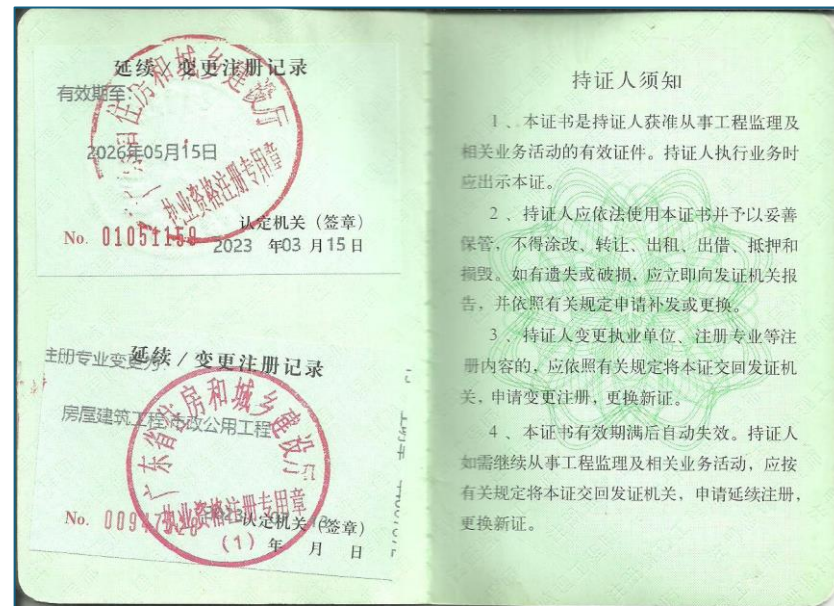 延续/变更注册记录
有效期至:
2026年05月15日
住房和城乡建设厅
执业资格注册专用章
认定机关（签章）
No. 01051159
2023 年03 月15日
延续/变更注册记录
主册专业变更为:
房屋建筑工程;市政公用工程
广东省住房和城乡建设厅
执业资格注册专用章
(1)
No.
认定机关（签章）
年 月 日
持证人须知
1、本证书是持证人获准从事工程监理及
相关业务活动的有效证件。持证人执行业务时
应出示本证。
2、持证人应依法使用本证书并予以妥善
保管，不得涂改、转让、出租、出借、抵押和
损毁。如有遗失或破损，应立即向发证机关报
告，并依照有关规定申请补发或更换。
3、持证人变更执业单位、注册专业等注
册内容的，应依照有关规定将本证交回发证机
关，申请变更注册，更换新证。
4、本证书有效期满后自动失效。持证人
如需继续从事工程监理及相关业务活动，应按
有关规定将本证交回发证机关，申请延续注册，
更换新证。